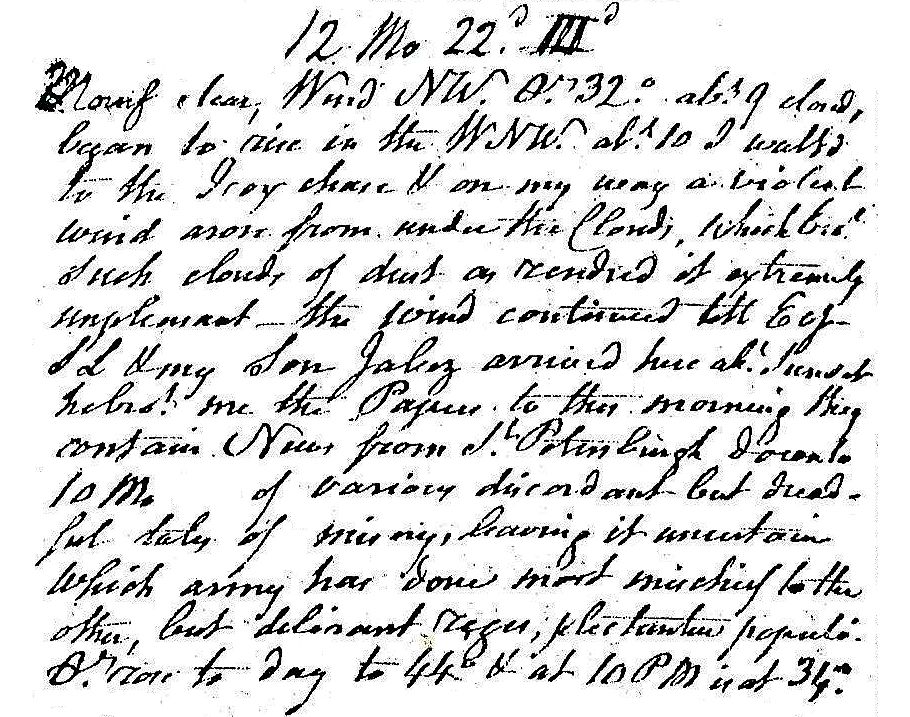 12 Mo 22d. III d
Morng clear, Wind NW. Or. 32.° abt. 9 cloud,
began to rise in the WNW. abt. 10 I walkd
to the Icoy chase & on my way a violent
wind arose from under the Clouds, which
such clouds of dust as rendred it extremely
unpleasant – the wind continued till Evg –
S L & my Son Jabez arrived here abt. Sunset
he brot. me the Papers to this morning they
contain News from St. Petersburgh down to
10 Mo of various discordant but dread-
ful tales of misery, leaving it uncertain
which army has done most mischief to the
other, but delirant reges, plectuntur populi.
Or. rose to day to 44° & at 10 PM is at 34°.